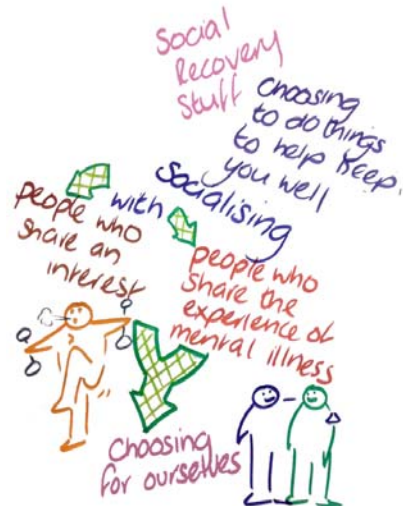 Social
Recovery
Stuff
choosing
to do things
to help keep
you well
socialising
with
people who
share an
interest
people who
share the
experience of
mental illness
choosing
for ourselves